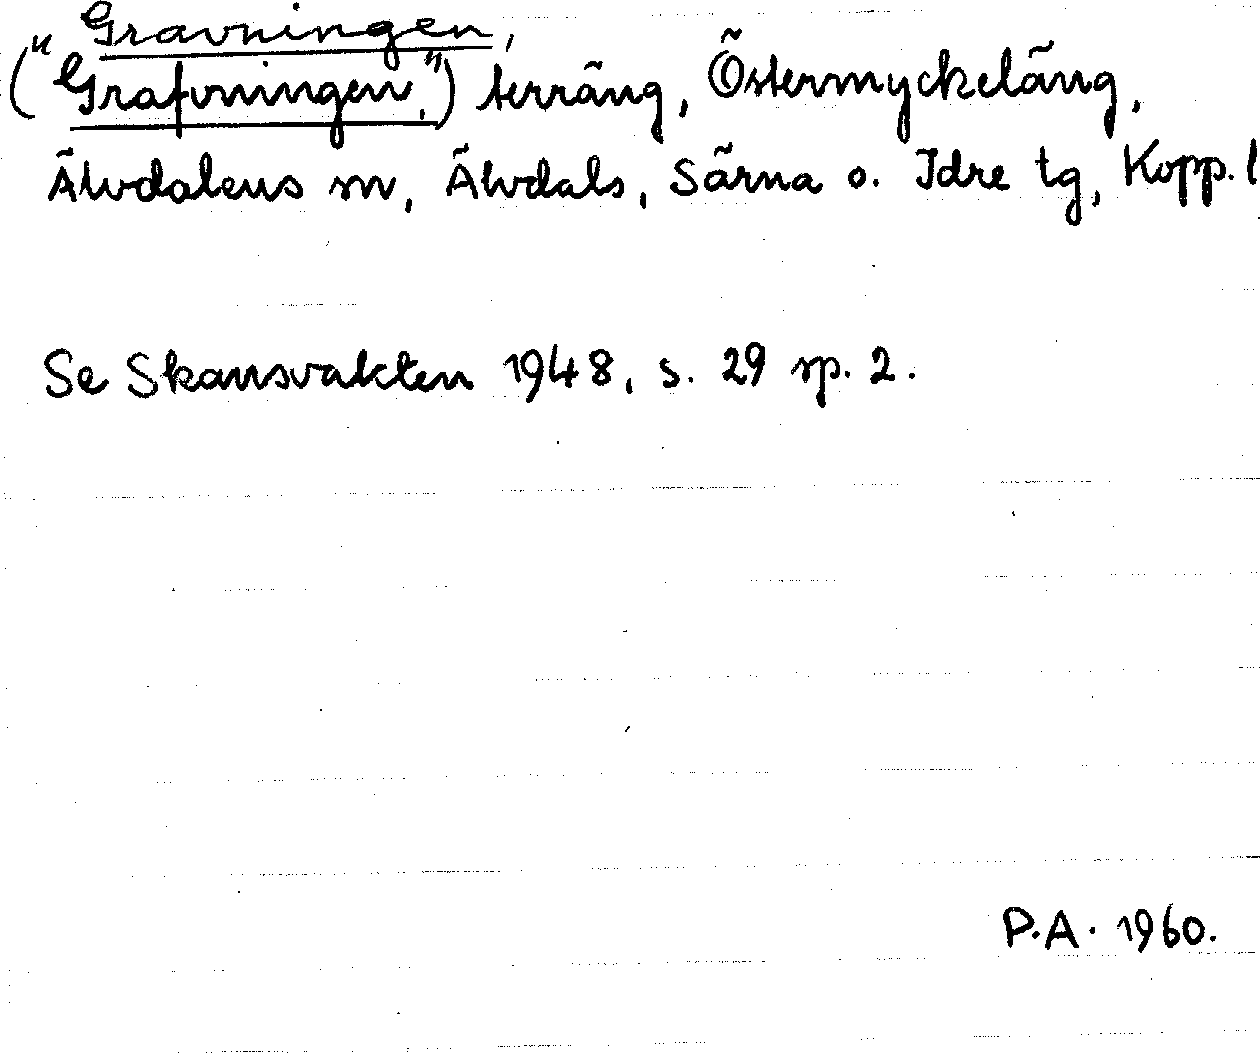 Gravningen,
("Grafvningen,") terräng, Östermyckeläng,
Älvdalens sn, Älvdals, Särna o. Idre tg, Kopp. l
Se Skansvakten 1948, s. 29 sp. 2.
P.A. 1960.